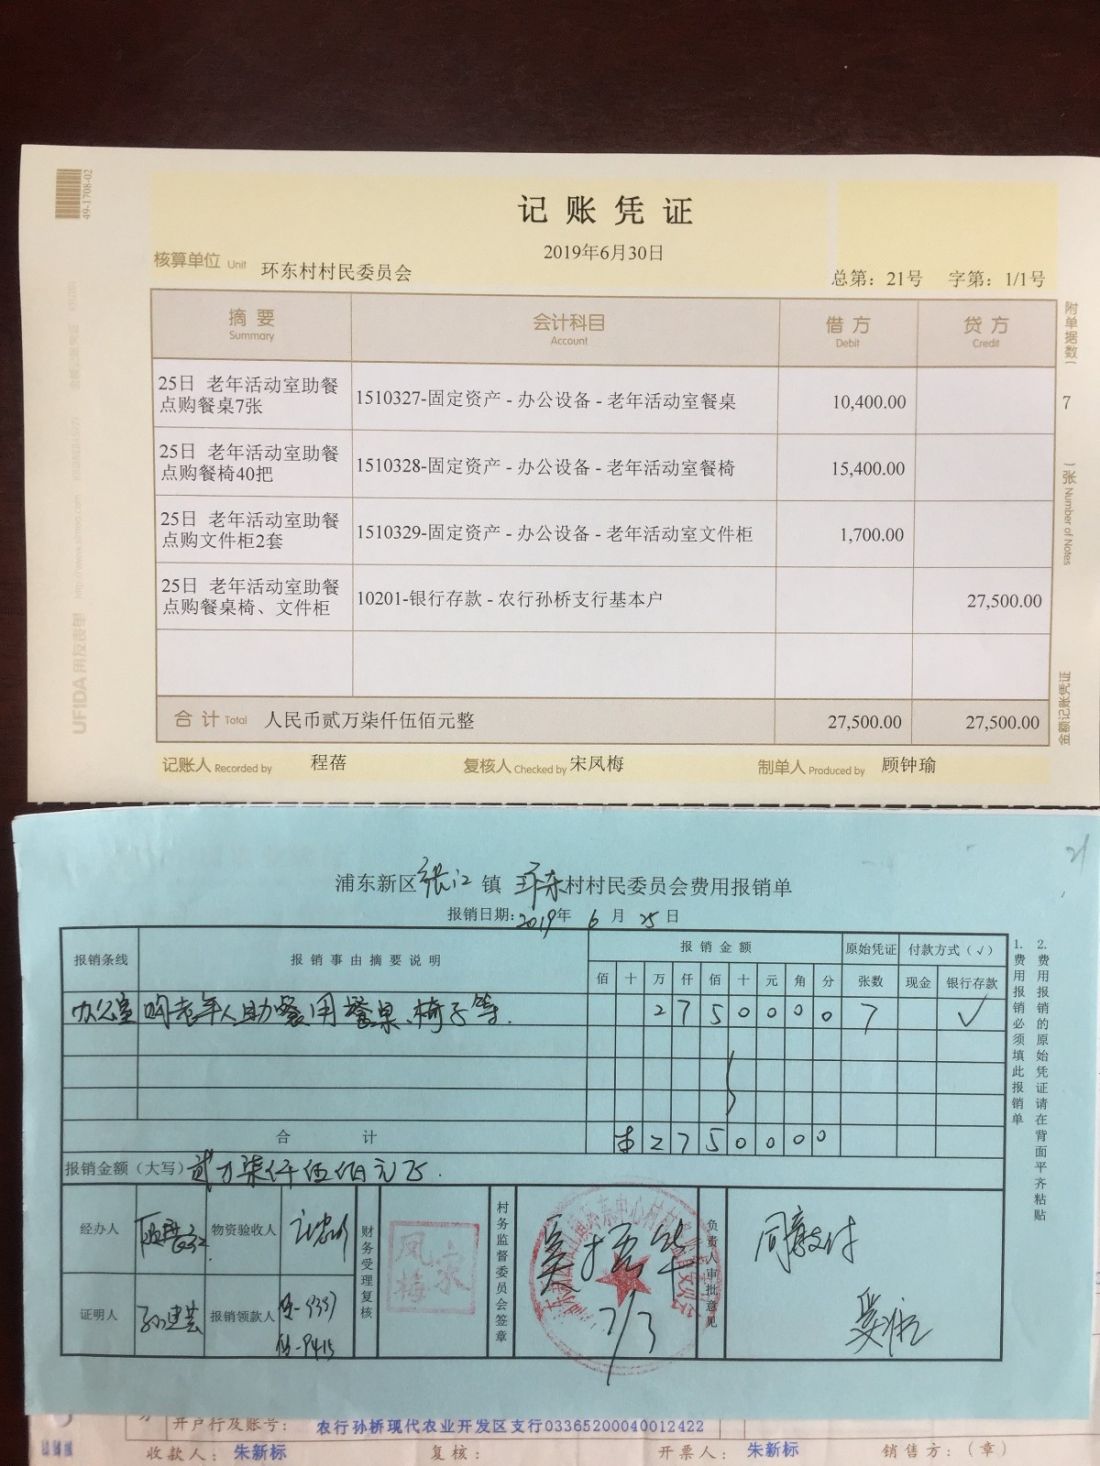 49-1708-02
记账凭证
2019年6月30日
核算单位 Unit 环东村村民委员会
总第：21号 字第：1/1号
摘要 会计科目 借方 贷方
Summary Account Debit Credit
25日 老年活动室助餐
点购餐桌7张 1510327-固定资产 - 办公设备 - 老年活动室餐桌 10,400.00
25日 老年活动室助餐
点购餐椅40把 1510328-固定资产 - 办公设备 - 老年活动室餐椅 15,400.00
25日 老年活动室助餐
点购文件柜2套 1510329-固定资产 - 办公设备 - 老年活动室文件柜 1,700.00
25日 老年活动室助餐
点购餐桌椅、文件柜 10201-银行存款 - 农行孙桥支行基本户 27,500.00
合计 Total 人民币贰万柒仟伍佰元整 27,500.00 27,500.00
记账人 Recorded by 程蓓 复核人 Checked by 宋凤梅 制单人 Produced by 顾钟瑜
附单据数（ 7 张） Number of Notes
金额记账凭证
UFIDA 用友表单
21
浦东新区张江镇 环东村村民委员会费用报销单
报销日期：2019年 6 月 25 日
报销条线 报销事由摘要说明 报销金额 原始凭证 付款方式（√）
佰 十 万 仟 佰 十 元 角 分 张数 现金 银行存款
办公室 购老年人助餐用餐桌、椅子等. 2 7 5 0 0 0 0 7 √
合计 ¥ 2 7 5 0 0 0 0
报销金额（大写） 贰万柒仟伍佰元正.
经办人 物资验收人
证明人 孙建芸 报销领款人
财务受理复核
凤梅
宋
村务监督委员会签章
7/3
负责人审批意见
同意支付
1. 费用报销必须填此报销单
2. 费用报销的原始凭证请在背面平齐粘贴
开户行及账号： 农行孙桥现代农业开发区支行03365200040012422
收款人： 朱新标 复核： 开票人： 朱新标 销售方：（章）